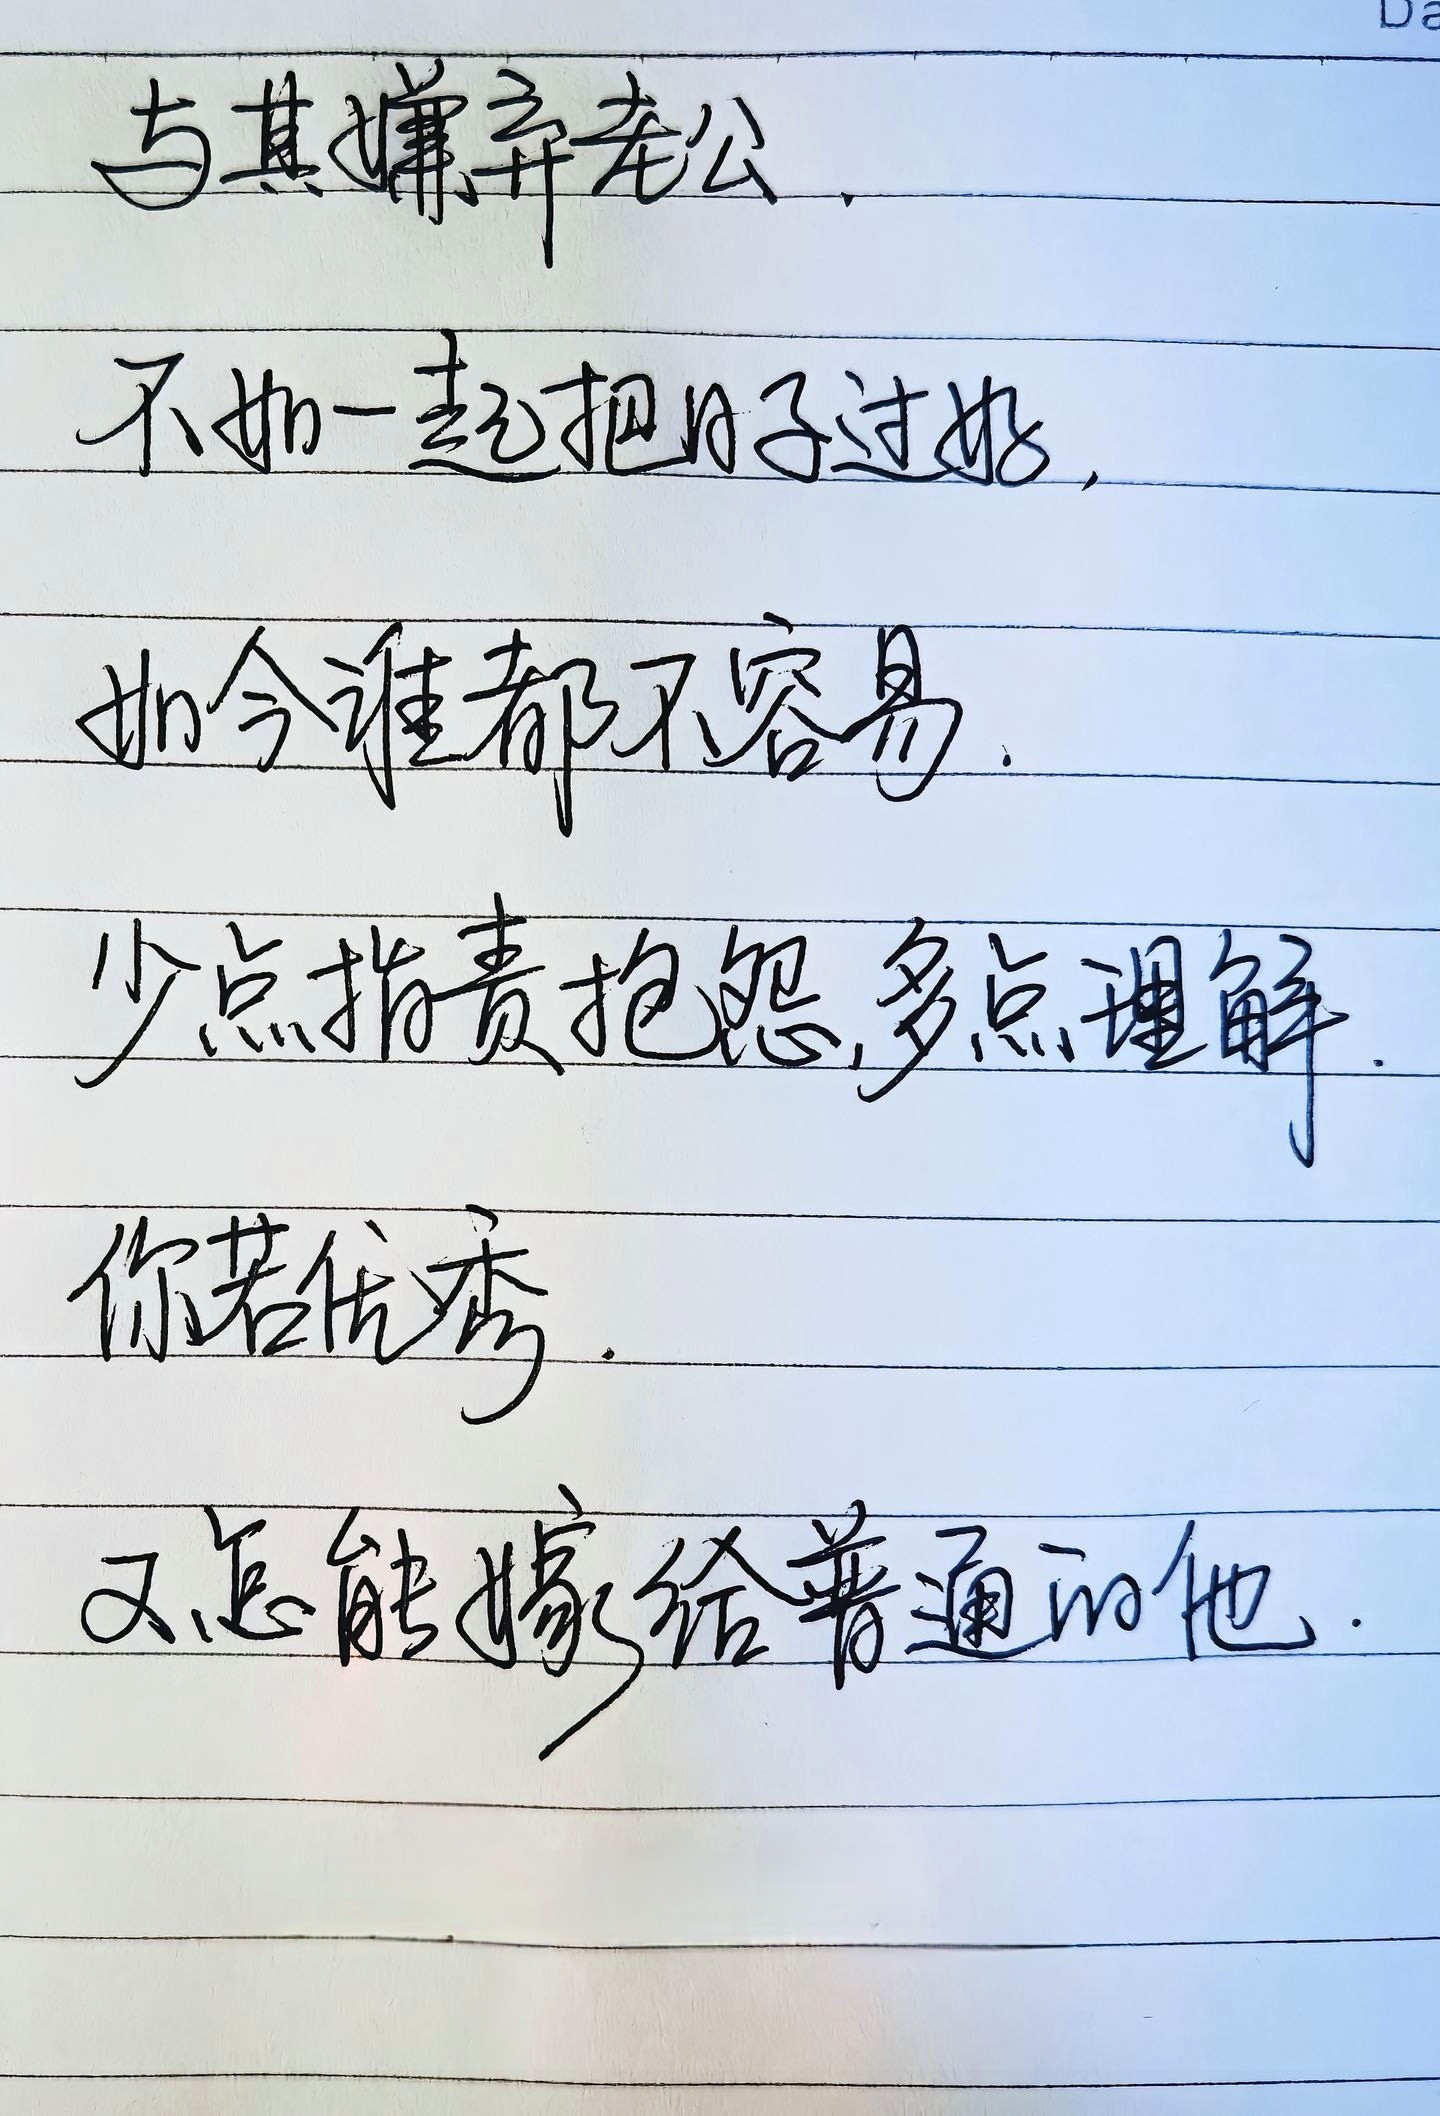 Da
与其嫌弃老公,
不如一起把日子过好,
如今谁都不容易.
少点指责抱怨,多点理解.
你若优秀.
又怎能嫁给普通的他.